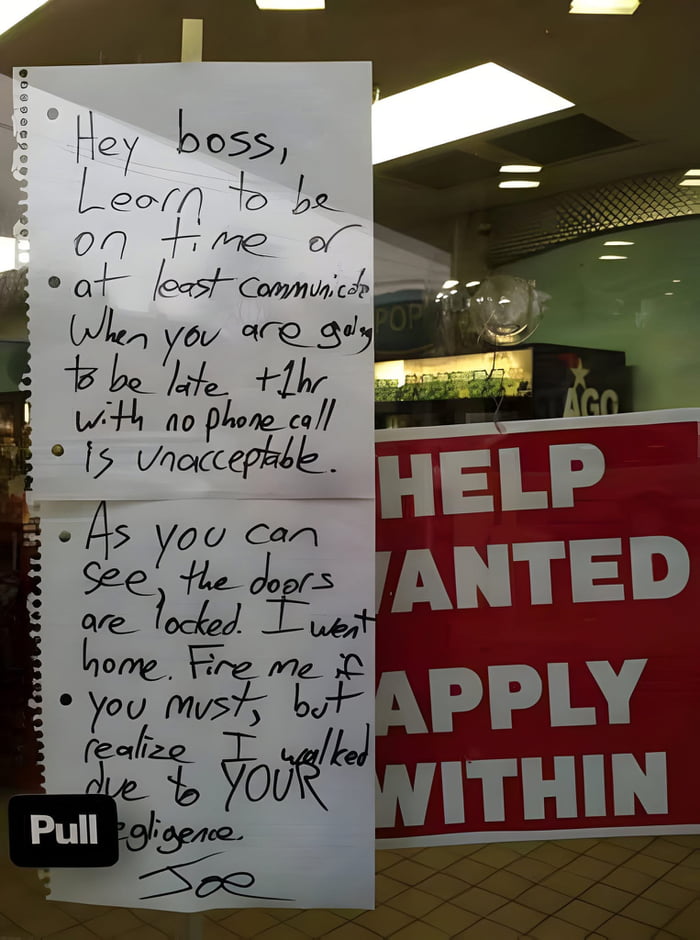 Hey boss,
Learn to be
on time or
at least communicate
when you are going
to be late +1hr
with no phone call
is unacceptable.
As you can
see, the doors
are locked. I went
home. Fire me if
you must, but
realize I walked
due to YOUR
egligence.
Joe
Pull
POP
AGO
HELP
WANTED
APPLY
WITHIN